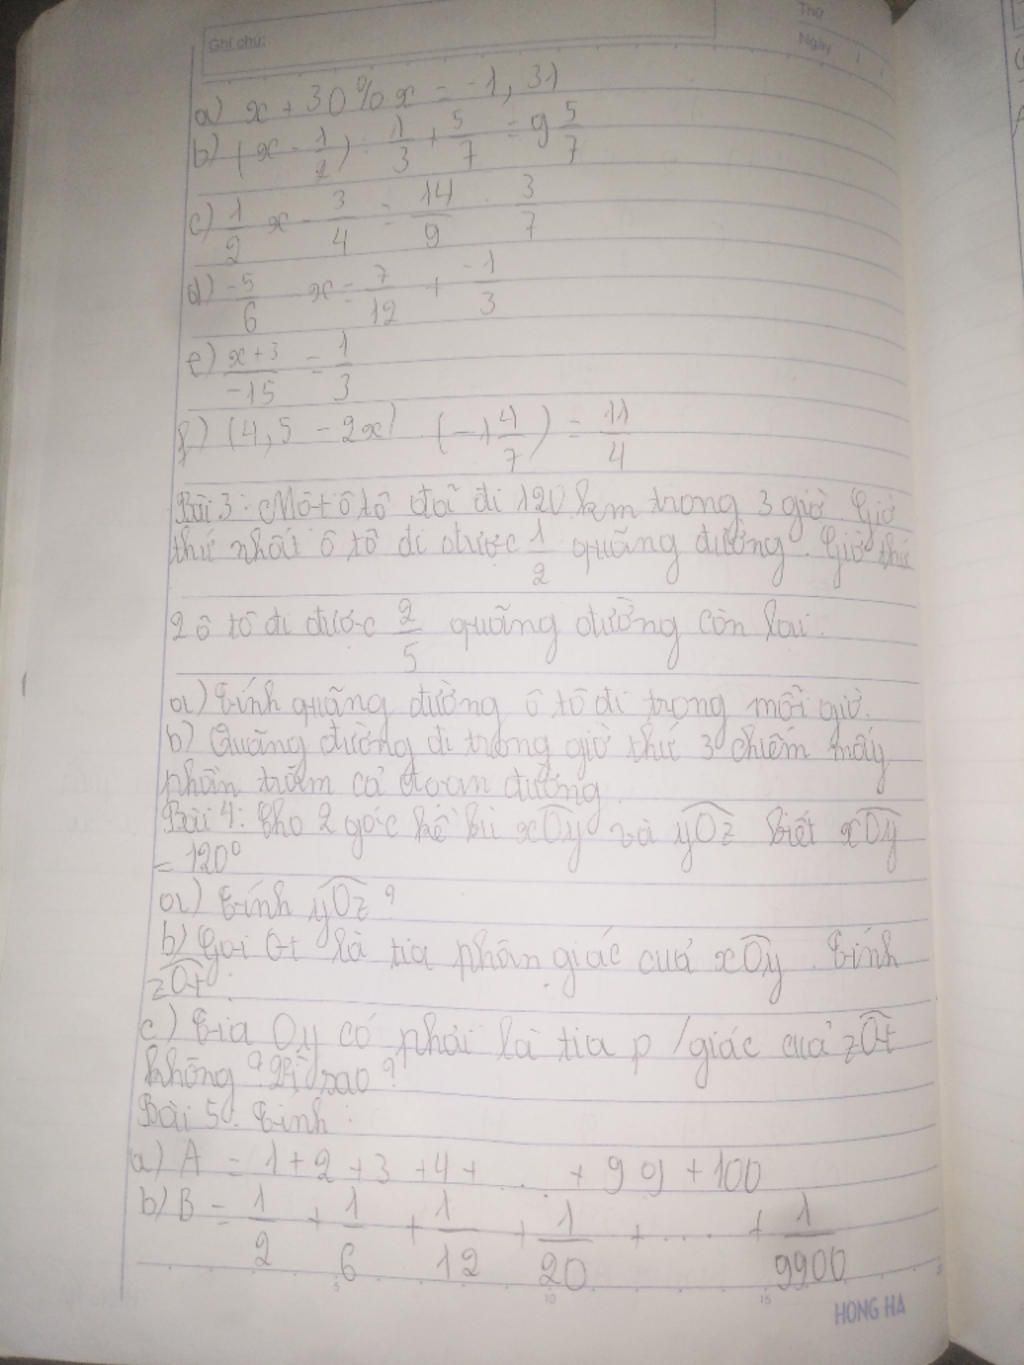 Ghi chú:
Thứ
Ngày / /
a) x + 30% x = -1,31
b) (x - 1/2) : 1/3 + 5/7 = 9 5/7
c) 1/2 x - 3/4 = 14/9 . 3/7
d) -5/6 - x = 7/12 + -1/3
e) x+3/-15 = 1/3
f) (4,5 - 2x) . (-1 4/7) = 11/4
Bài 3: Một ô tô đã đi 120 km trong 3 giờ. Giờ
thứ nhất ô tô đi được 1/2 quãng đường. Giờ thứ
2 ô tô đi được 2/5 quãng đường còn lại.
a) Tính quãng đường ô tô đi trong mỗi giờ.
b) Quãng đường đi trong giờ thứ 3 chiếm mấy
phần trăm cả đoạn đường.
Bài 4: Cho 2 góc kề bù xOy và yOz biết xOy
= 120°
a) Tính yOz ?
b) Gọi Ot là tia phân giác của xOy. Tính
zOt
c) Tia Oy có phải là tia p/giác của zOt
không ? Vì sao ?
Bài 5: Tính :
a) A = 1 + 2 + 3 + 4 + ... + 99 + 100
b) B = 1/2 + 1/6 + 1/12 + 1/20 + .... + 1/9900
5 10 15
HONG HA